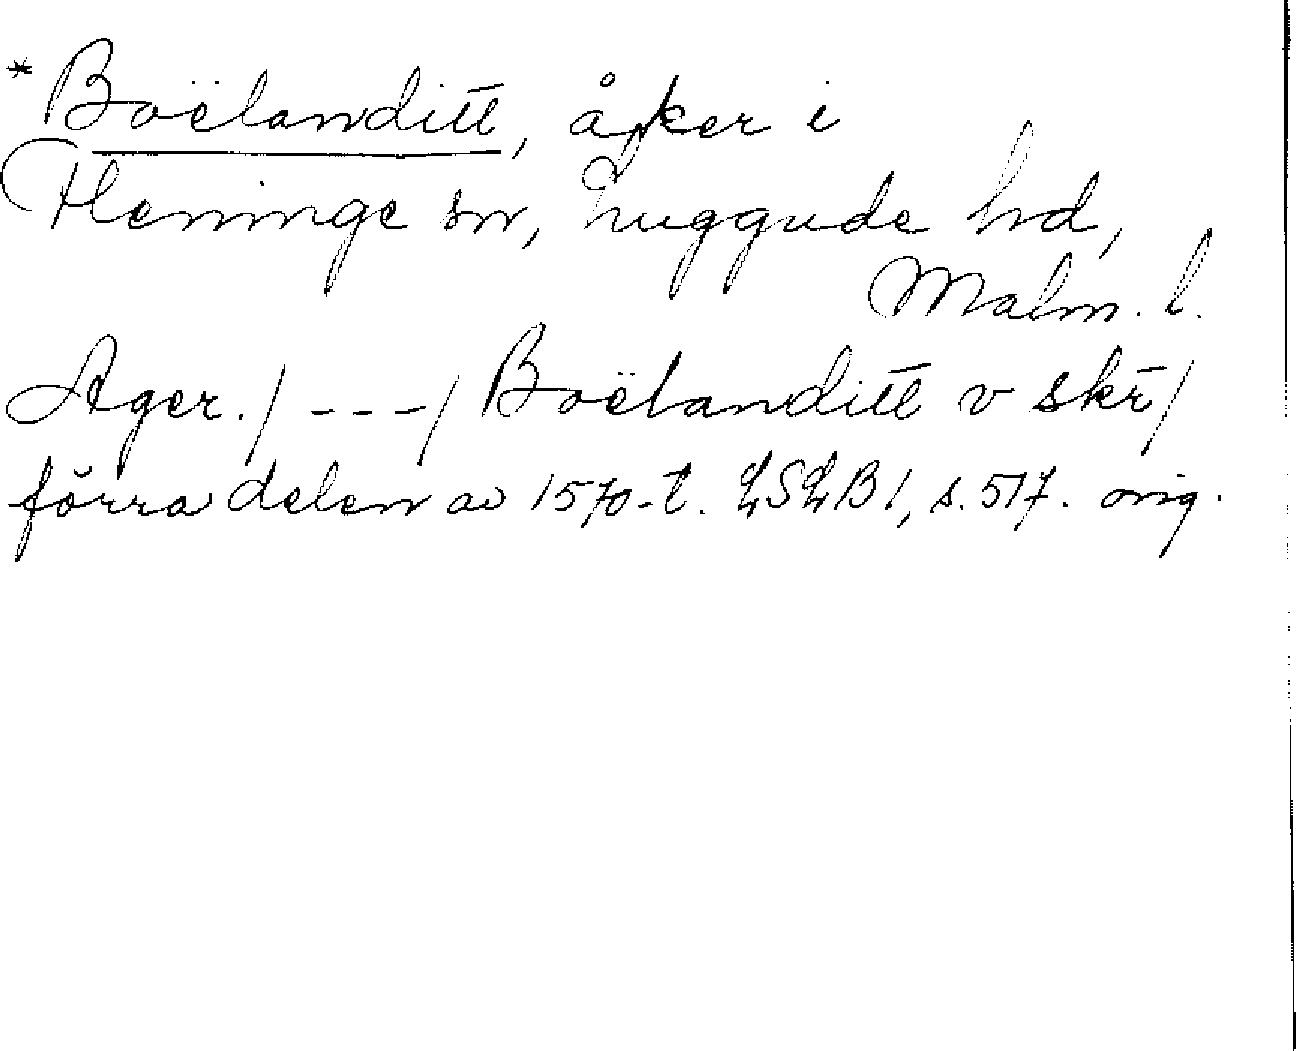 *Boëlanditt, åker i
Fleninge sn, Luggude hd,
Malm. l.
Ager./ - - - / Boëlanditt v skr /
förra delen av 1570-t. LSLB 1, s. 517. orig.